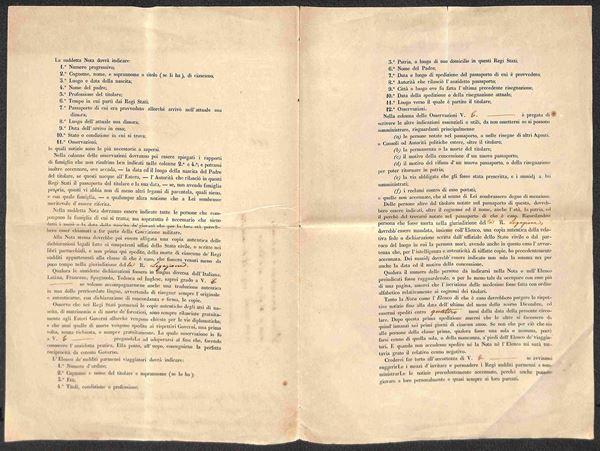 La suddetta Nota dovrà indicare:
1.° Numero progressivo;
2.° Cognome, nome, e soprannome o titolo (se li ha), di ciascuno,
3.° Luogo e data della nascita,
4.° Nome del padre;
5.° Professione del titolare;
6.° Tempo in cui partì dai Regi Stati;
7.° Passaporto di cui era provveduto allorchè arrivò nell'attuale sua
dimora;
8.° Luogo dell'attuale sua dimora;
9.° Data dell'arrivo in essa;
10.° Stato e condizione in cui si trova;
11.° Osservazioni,
le quali notizie sono le più necessarie a sapersi.
Nella colonna delle osservazioni dovranno poi essere spiegati i rapporti
di famiglia che non risultino ben indicati nelle colonne 2.ª e 4.ª; e potranno
inoltre accennare, ove accada, — la data ed il luogo della nascita del Padre
del titolare, se questi nacque all'Estero, — l'Autorità che rilasciò in questi
Regi Stati il passaporto del titolare e la sua data, — se, non avendo famiglia
propria, questi vi abbia non di meno altri legami di parentela, quali sieno,
e con quale famiglia, — e qualunque altra notizia che a Lei sembrasse
meritevole d'essere riferita.
Nella suddetta Nota dovranno indicarsi tutte le persone che com-
pongono la famiglia di cui si tratta; ma sopratutto è necessario che siene
dati i nomi e la data della nascita de' giovani che per la loro età potreb-
bero esser chiamati a far parte della Coscrizione militare.
Alla Nota stessa dovrebbe poi essere allegata una copia autentica delle
dichiarazioni legali fatte ai competenti uffizi dello Stato civile, o scritte nei
libri parrocchiali, e non prima qui spedite, della morte di ciascuno de' Regi
sudditi appartenenti alla classe di che è caso, che fossero venuti meno da
poco tempo nella giurisdizione del R.
Qualora le anzidette dichiarazioni fossero in lingua diversa dall'Italiana,
Latina, Francese, Spagnuola, Tedesca od Inglese, saprei grado a V. S.
se volesse accompagnarmene anche una traduzione autentica
in una delle precitate lingue, avvertendo di rinviar sempre l'originale
e autenticarne, con dichiarazione di concordanza e firma, le copie.
Osservo che nei Regi Stati parmensi le copie autentiche degli atti di na-
scita, di matrimonio o di morte de' forestieri, sono sempre rilasciate gratuita-
mente agli Esteri Governi allorchè vengono chieste per la via diplomatica;
e che anzi quelle di morte vengono spedite ai rispettivi Governi, una prima
volta, senza richiesta, e sempre gratuitamente. La quale osservazione io fo
a V. S. pregandoLa ad adoperarsi al fine che, facendo
conoscere l'anzidetta pratica, Ella possa, all'uopo, conseguirne la perfetta
reciprocità da cotesto Governo.
L'Elenco de' sudditi parmensi viaggiatori dovrà indicare:
1.° Numero d'ordine;
2.° Cognome e nome del titolare e soprannome (se lo ha);
3.° Età;
4.° Titoli, condizione o professione;
5.° Patria, o luogo di suo domicilio in questi Regi Stati;
6.° Nome del Padre;
7.° Data e luogo di spedizione del passaporto di cui è provveduto;
8.° Autorità che rilasciò l'anzidetto passaporto;
9.° Città o luogo ove fu fatta l'ultima precedente risegnazione;
10.° Data della spedizione o della risegnazione attuale,
11.° Luogo verso il quale è partito il titolare;
12.° Osservazioni.
Nella colonna delle Osservazioni V. S. è pregata di
scrivere le altre indicazioni essenziali o utili, da non omettersi se si possono
somministrare, risguardanti principalmente
(a) le persone notate nel passaporto, o nelle risegne di altri Agenti
e Consoli od Autorità politiche estere, oltre il titolare,
(b) la permanenza o la morte del titolare;
(c) il motivo della concessione d'un nuovo passaporto,
(d) il motivo del rifiuto d'un nuovo passaporto, o della risegnazione
per poter ritornare in patria;
(e) la via obbligata che gli fosse stata prescritta, e i sussidj a lui
somministrati;
(f) i reclami contro di esso portati;
e quelle non accennate, che al senno di Lei sembrassero degne di menzione.
Delle persone oltre del titolare notate nel passaporto di questo, dovreb-
bero essere indicati, oltre il cognome ed il nome, anche l'età, la patria, ed
il perchè del trovarsi notate nel passaporto di che è caso. Risguardando
persona che fosse morta nella giurisdizione del R.
dovrebb'esser mandata, insieme coll'Elenco, una copia autentica della rela-
tiva fede o dichiarazione scritta dall'uffiziale dello Stato civile o dal par-
roco del luogo in cui la persona morì, avendo anche in questo caso l'avver-
tenza che, per l'intelligenza e autenticità di siffatte copie, ho precedentemente
accennata. Dei sussidj dovrebb'essere indicata non solo la somma ma pur
anche la data ed il motivo della concessione.
Qualora il numero delle persone da indicarsi nella Nota o nell'Elenco
prindicati fosse ragguardevole, o per lo meno tale da occupare con esse più
di una pagina, amerei che l'iscrizione delle medesime fosse fatta con ordine
alfabetico relativamente ai cognomi dei titolari.
Tanto la Nota come l'Elenco di che è caso dovrebbero porgere le rispet-
tive notizie fino alla data dell'ultimo del mese dello scorso Dicembre, ed
essermi spediti entro quattro mesi dalla data della presente circo-
lare. Dopo questa prima spedizione amerei che le altre si facessero da
quind' innanzi nei primi giorni di ciascun anno. Se non che per ciò che sia
alle persone della classe prima, qualora fosse una sola o nessuna, potrà
farsi cenno di quella sola, o della mancanza, a' piedi dell'Elenco de' viaggia-
tori. E quando non accadesse spedire nè la Nota nè l'Elenco mi sarà tut-
tavia grato il relativo cenno negativo.
Crederei far torto all'accortezza di V. S. se avvisassi
suggerirLe i mezzi d'invitare e persuadere i Regi sudditi parmensi a som-
ministrarLe le notizie precedentemente accennate, perchè anche possono
giovare a loro personalmente e quasi sempre ai loro parenti.